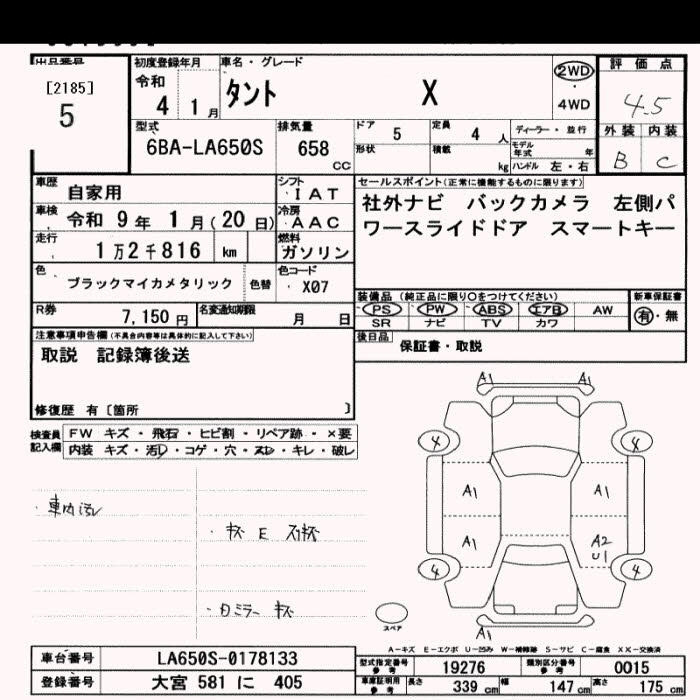 出品番号
[2185]
5
初度登録年月
令和
4 1月
車名・グレード
タント X
2WD
・
4WD
評価点
4.5
外装 内装
B C
型式
6BA-LA650S
排気量
658
CC
ドア 5
定員 4 人
ディーラー・並行
形状
積載
kg
モデル年式 年
ハンドル 左・右
車歴
自家用
シフト
IAT
車検
令和 9年 1月(20日)
冷房
AAC
走行
1万2千816 km
燃料
ガソリン
色
ブラックマイカメタリック
色替
色コード
X07
R券
7,150円
名変通知期限
月 日
セールスポイント(正常に機能するものに限ります)
社外ナビ バックカメラ 左側パ
ワースライドドア スマートキー
装備品(純正品に限り○をつけてください)
新車保証書
PS PW ABS エアB AW
SR ナビ TV カワ
有・無
後日品
保証書・取説
注意事項申告欄(不具合内容等は具体的に記入して下さい)
取説 記録簿後送
修復歴 有〔箇所 〕
検査員
記入欄
FW キズ・飛石・ヒビ割・リペア跡・×要
内装 キズ・汚レ・コゲ・穴・スレ・キレ・破レ
・車内汚レ
・キズ E
・ミラー キズ
A1 A1
4 4
A1 A1
A1 A2
U1
4 4
スペア
A1
A-キズ E-エクボ U-凹み W-補修跡 S-サビ C-腐食 XX-交換済
車台番号
LA650S-0178133
型式指定番号
参考
19276
類別区分番号
参考
0015
登録番号
大宮 581 に 405
車庫証明用
参考
長さ 339 cm
幅 147 cm
高さ 175 cm